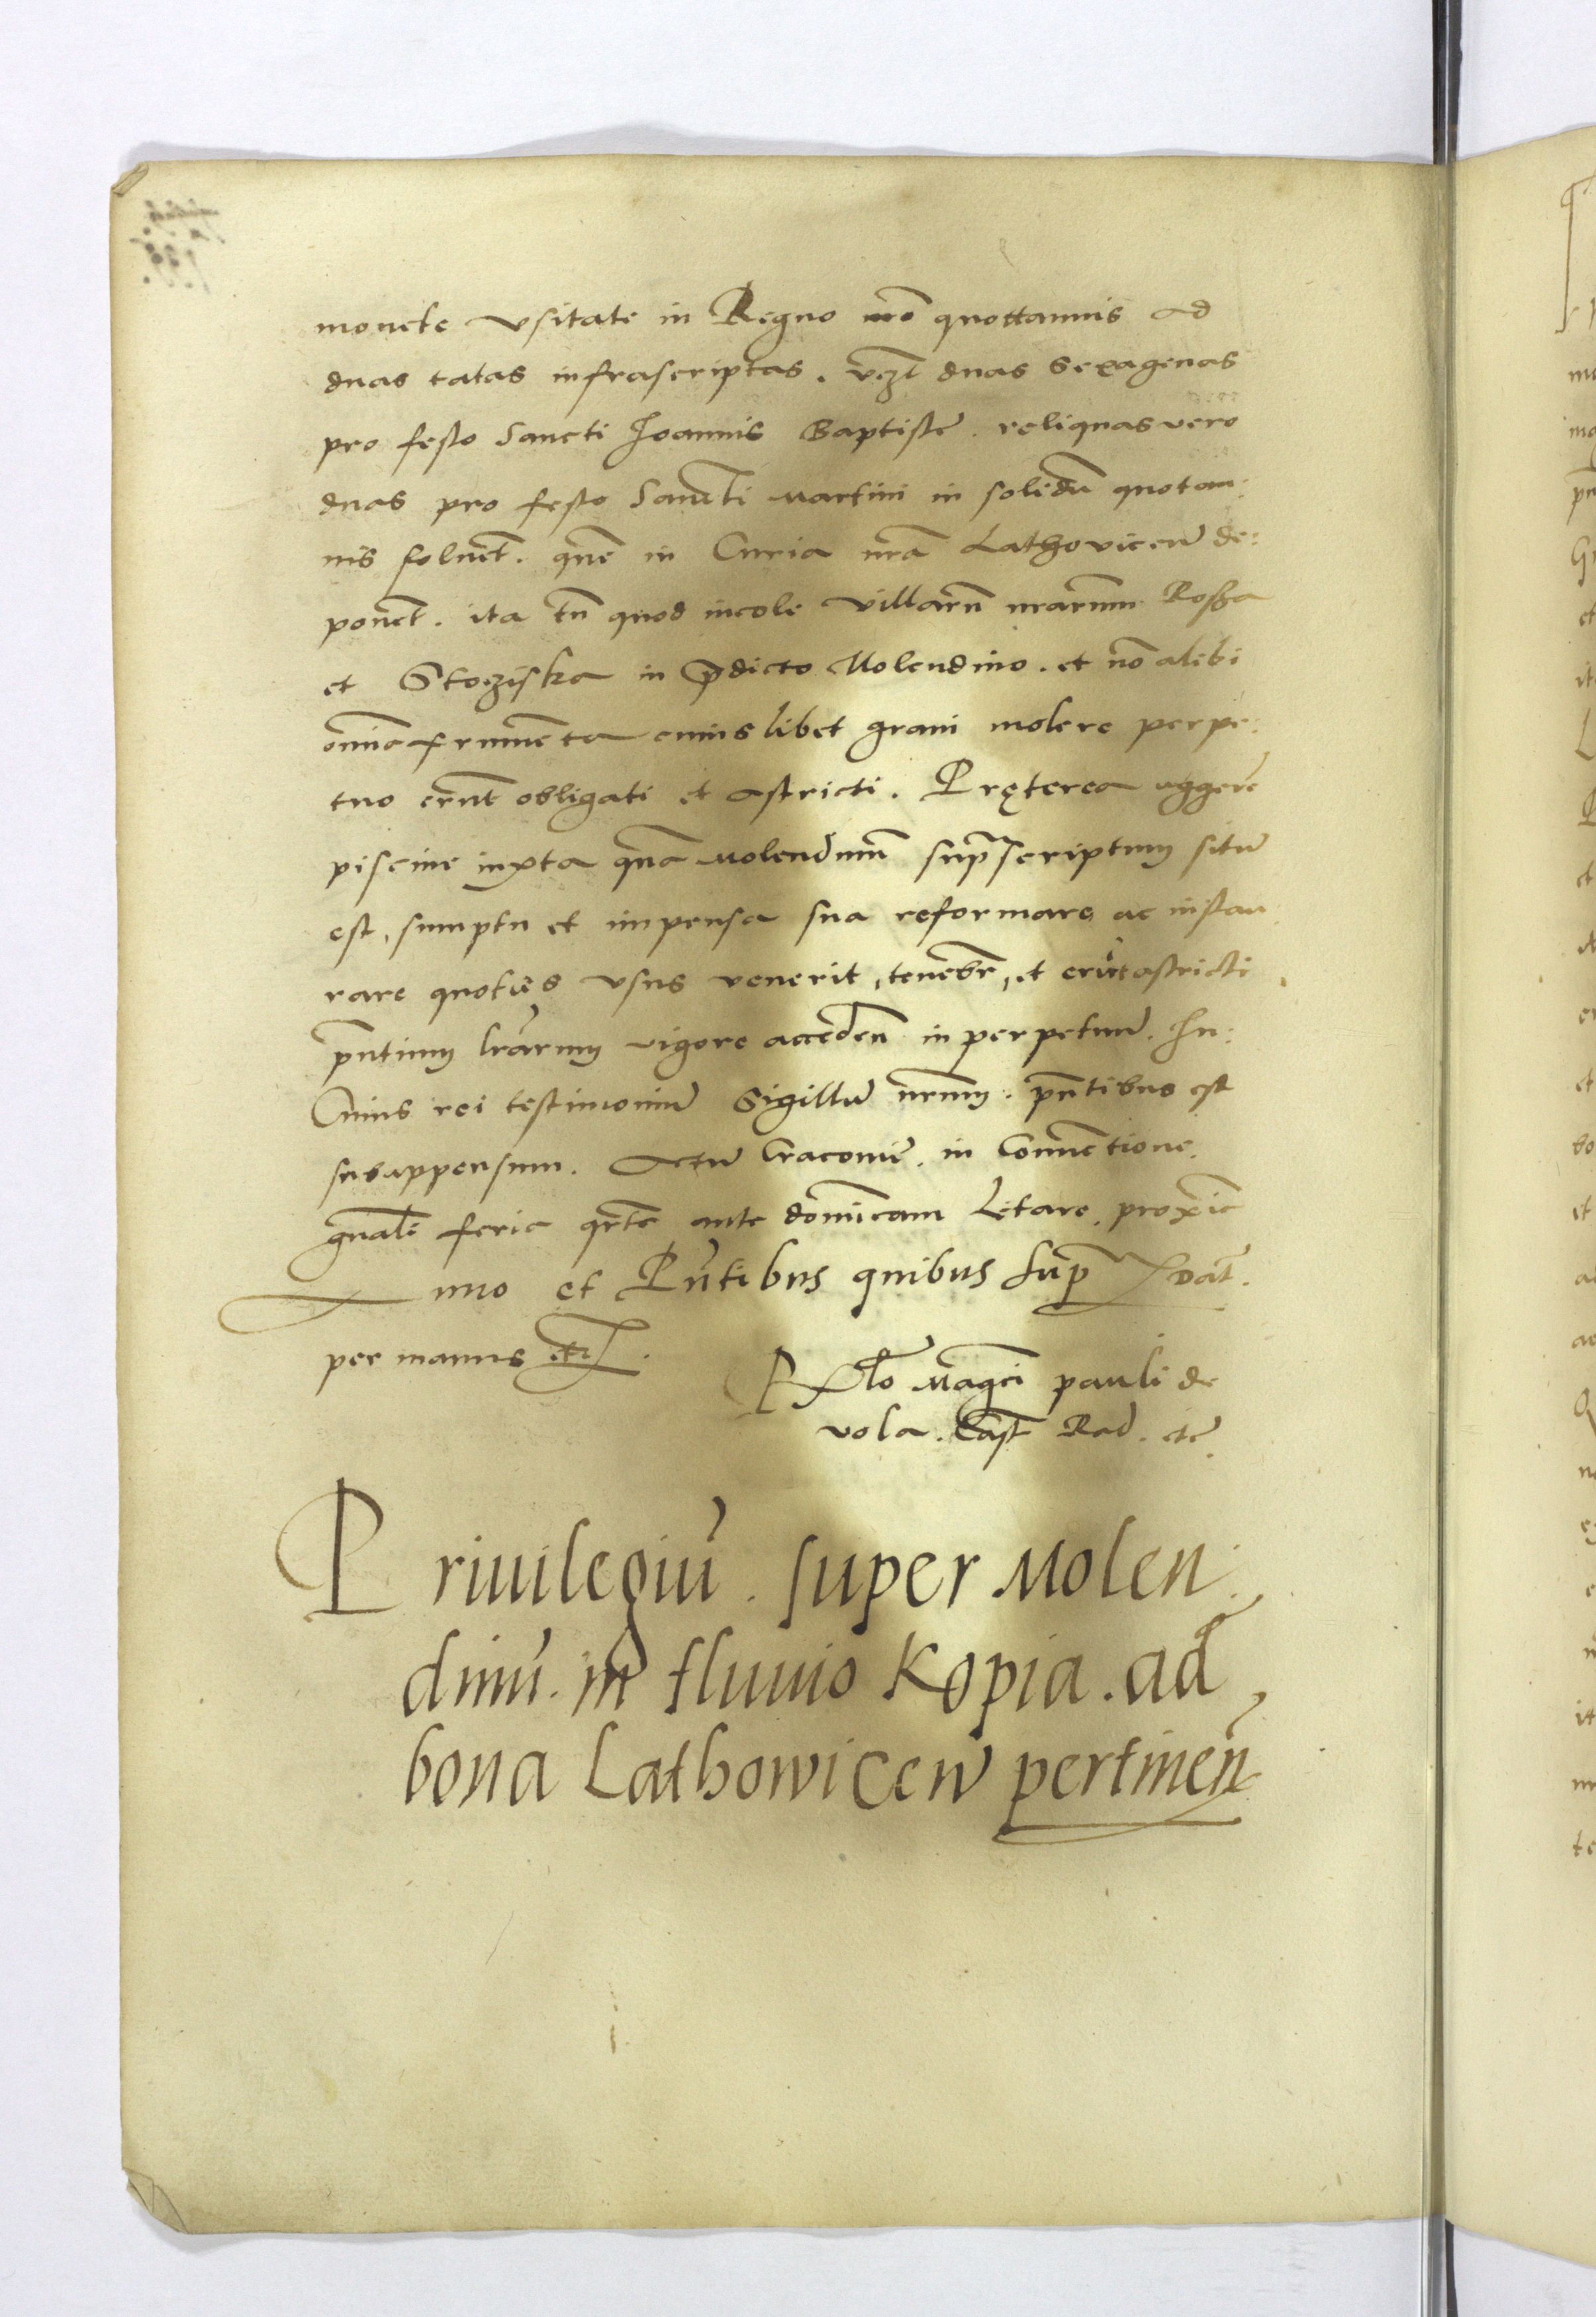 monete vsitate in Regno nr̃o quottannis ad
duas ratas infrascriptas. vczt duas sexagenas
pro festo Sancti Joannis Baptistę. reliquas vero
duas pro festo Sancti Martini in solidũ quotan:
nis soluẽt. quẽ in Curia nr̃a Lathoviceñ de:
ponẽt. ita tñ quod incole villarũ nr̃arum Rosza
et Stoziska in p̃dicto Molendino. et nõ alibi
omnia frumẽta cuius libet grani molere perpe:
tuo erũt obligati et astricti. Pręterea aggerẽ
piscine iuxta quã Molendinũ suprascriptum sitũ
est, sumptu et impensa sua reformare ac instau
rare quoties vsus venerit, tenebr̃, et erũt astricti
pñtium lr̃arum vigore acceden̄ in perpetuũ. In:
Cuius rei testimoniũ Sigillũ nr̃um. pñtibus est
subappensum. Actũ Cracouie. in Conuẽtione.
gñali feria qrta ante domĩcam Letare. proxĩe
nno et Pñtibus quibus supr̃a Dat̃.
per manus etc.
Rlõ Magci pauli de
vola. Cast̃ Rad. etc̃.
Priuilegiũ. super Molen
dinũ. in fluuio Kopia. ad
bona Lathowiceñ pertineñ